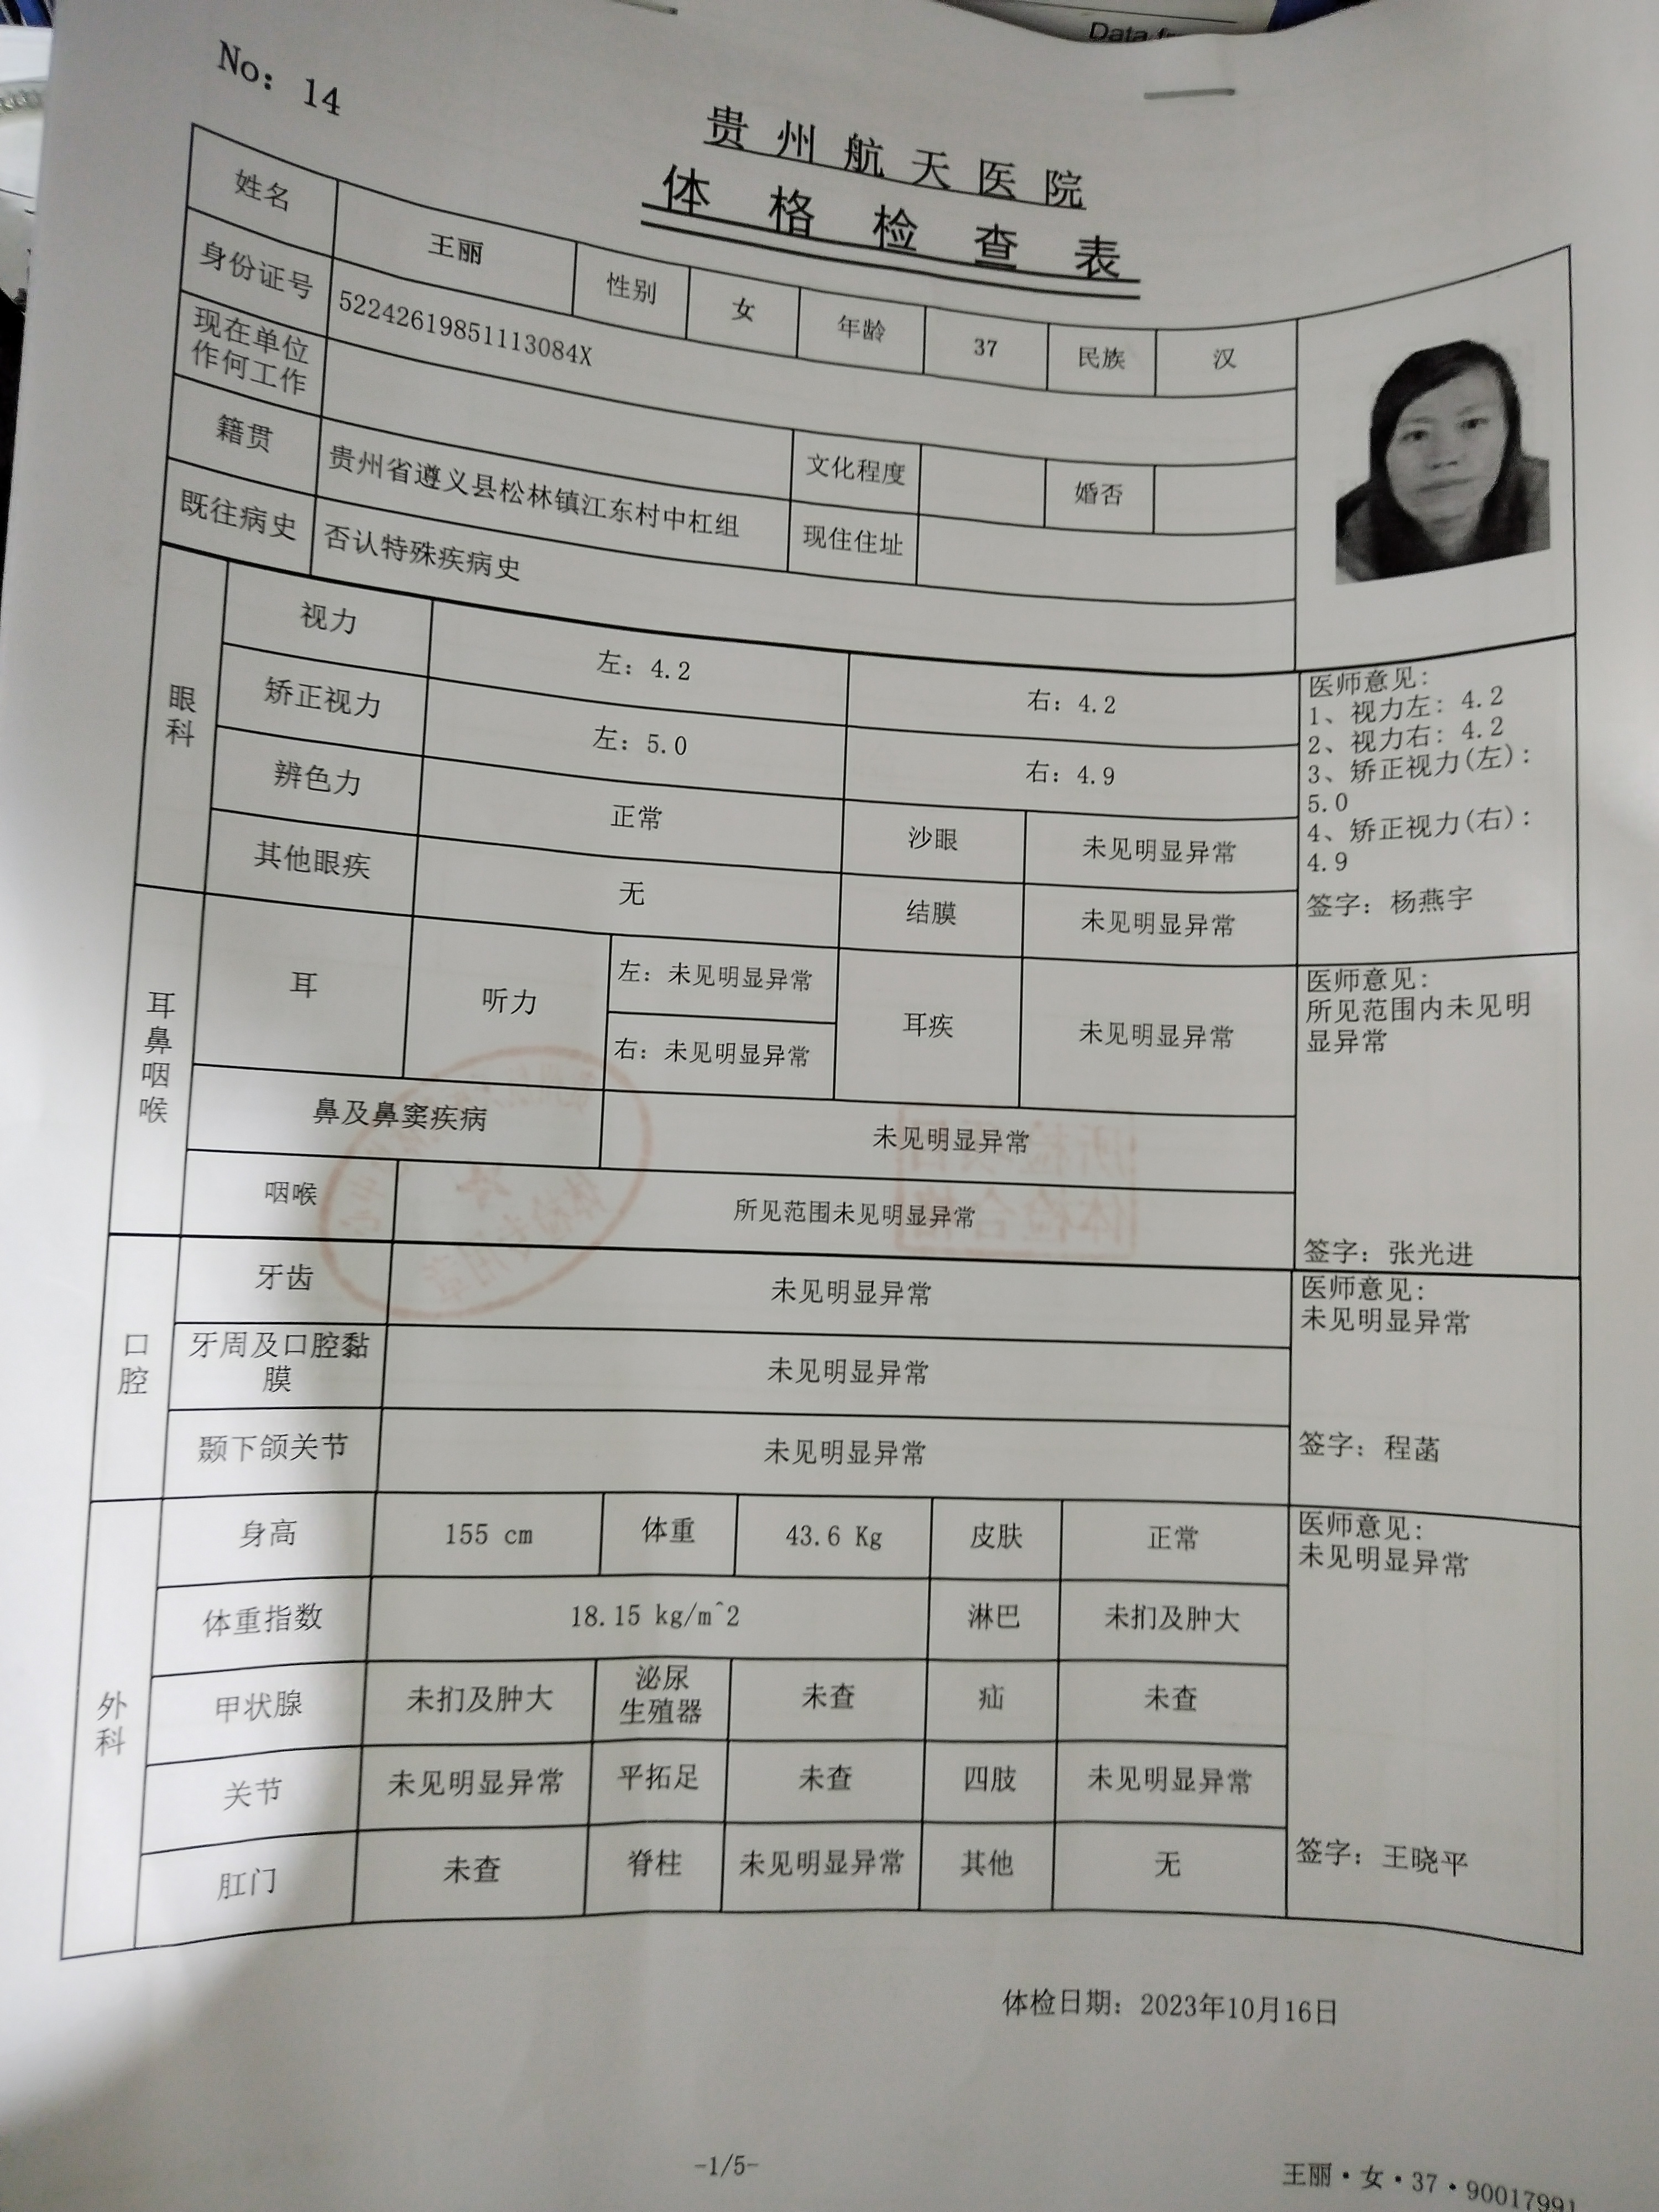 Data f
No: 14
贵州航天医院
体格检查表
姓名 王丽 性别 女 年龄 37 民族 汉
身份证号 52242619851113084X
现在单位
作何工作
籍贯 贵州省遵义县松林镇江东村中杠组 文化程度 婚否
现住住址
既往病史 否认特殊疾病史
眼科
视力 左: 4.2 右: 4.2
矫正视力 左: 5.0 右: 4.9
辨色力 正常 沙眼 未见明显异常
其他眼疾 无 结膜 未见明显异常
医师意见:
1、视力左: 4.2
2、视力右: 4.2
3、矫正视力(左):
5.0
4、矫正视力(右):
4.9
签字: 杨燕宇
耳鼻咽喉
耳 听力 左: 未见明显异常 耳疾 未见明显异常
右: 未见明显异常
鼻及鼻窦疾病 未见明显异常
咽喉 所见范围未见明显异常
医师意见:
所见范围内未见明
显异常
签字: 张光进
所检项目
体检合格
体检专用章
口腔
牙齿 未见明显异常
牙周及口腔黏
膜 未见明显异常
颞下颌关节 未见明显异常
医师意见:
未见明显异常
签字: 程菡
外科
身高 155 cm 体重 43.6 Kg 皮肤 正常
体重指数 18.15 kg/m^2 淋巴 未扪及肿大
甲状腺 未扪及肿大 泌尿
生殖器 未查 疝 未查
关节 未见明显异常 平拓足 未查 四肢 未见明显异常
肛门 未查 脊柱 未见明显异常 其他 无
医师意见:
未见明显异常
签字: 王晓平
体检日期: 2023年10月16日
-1/5-
王丽·女·37·90017991